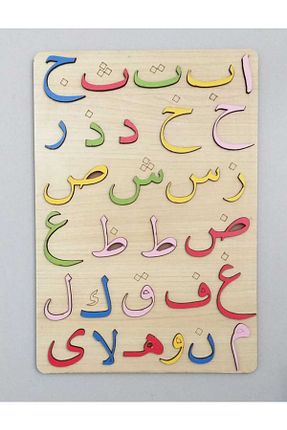 ا ب ت ث ج
ح خ د ذ ر
ز س ش ص
ض ط ظ ع
غ ف ق ك ل
م ن و ه لا ى